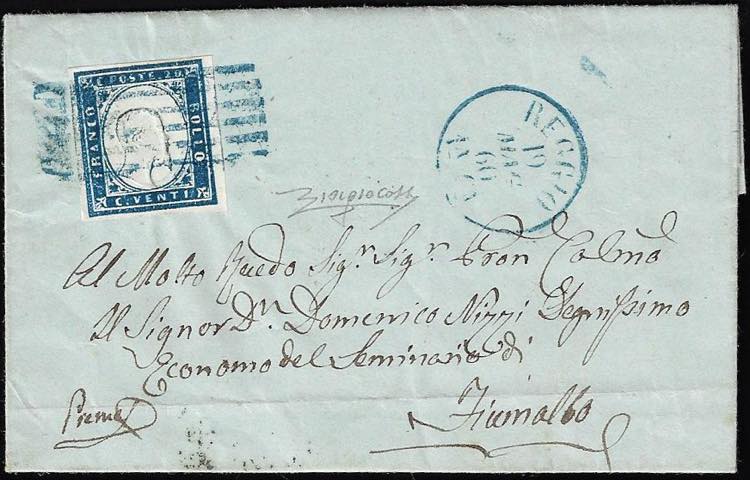 C. POSTE. 20.
FRANCO
BOLLO
C. VENTI
REGGIO
19
60
Al Molto Revdo Sigr. Sigr. Pron Colmo
Il Signor Dn. Domenico Nizzi Degnissimo
Economo del Seminario di
Fiumalbo